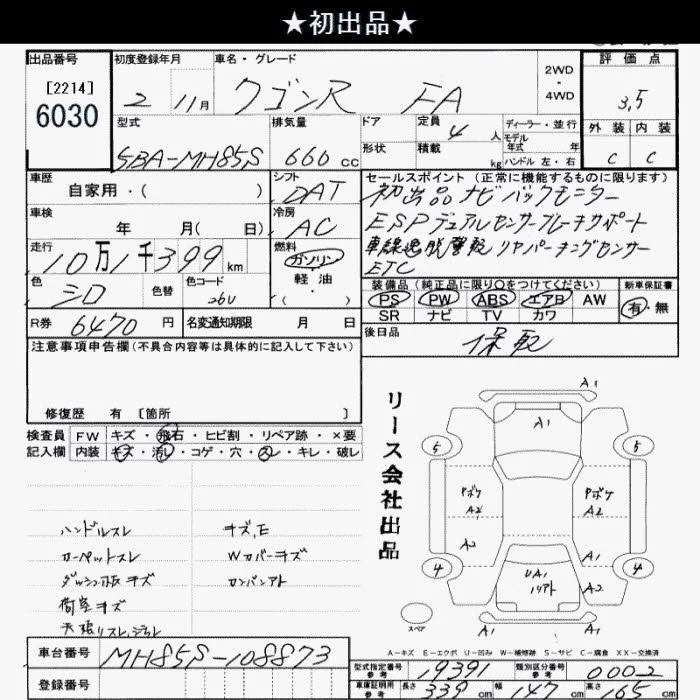 ★初出品★
出品番号
[2214]
6030
初度登録年月
2 11月
車名・グレード
ワゴンR FA
2WD
・
4WD
評価点
3.5
外装 内装
C C
型式
5BA-MH85S
排気量
660 cc
ドア
形状
定員 4 人
積載 kg
ディーラー・並行
モデル
年式 年
ハンドル 左・右
車歴
自家用・( )
シフト
DAT
セールスポイント (正常に機能するものに限ります)
初出品 ナビ バックモニター
ESP デュアルセンサーブレーキサポート
車線逸脱警報 リヤパーキングセンサー
ETC
車検
年 月( 日)
冷房
AC
走行
10万1千399 km
燃料
ガソリン
軽油
・( )
色
シロ
色替
色コード
26U
装備品 (純正品に限り○をつけてください)
PS PW ABS エアB AW
SR ナビ TV カワ
新車保証書
有・無
R券 6470 円
名変通知期限 月 日
後日品
保取
注意事項申告欄 (不具合内容等は具体的に記入して下さい)
修復歴 有 [箇所 ]
検査員
記入欄
FW キズ・飛石・ヒビ割・リペア跡・×要
内装 キズ・汚レ・コゲ・穴・スレ・キレ・破レ
ハンドルスレ
カーペットスレ
ダッシュ板キズ
荷室キズ
天張リスレ,
キズ,E
Wカバーキズ
カンバンアト
リース会社出品
A1
A1
5
5
Pボケ
A2
Pボケ
A2
A2
A1
4
4
UA1
A2
スペア
A1
A1
A−キズ E−エクボ U−凹み W−補修跡 S−サビ C−腐食 XX−交換済
車台番号
MH85S-108873
登録番号
型式指定番号
参考
19391
類別区分番号
参考
0002
車庫証明用
参考
長さ 339 cm 幅 147 cm 高さ 165 cm